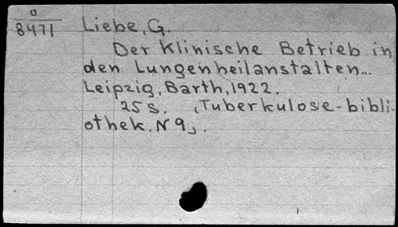 0
8471
Liebe, G.
Der Klinische Betrieb in
den Lungenheilanstalten...
Leipzig, Barth, 1922.
25 S. „Tuberkulose-bibli-
othek. N 9„.